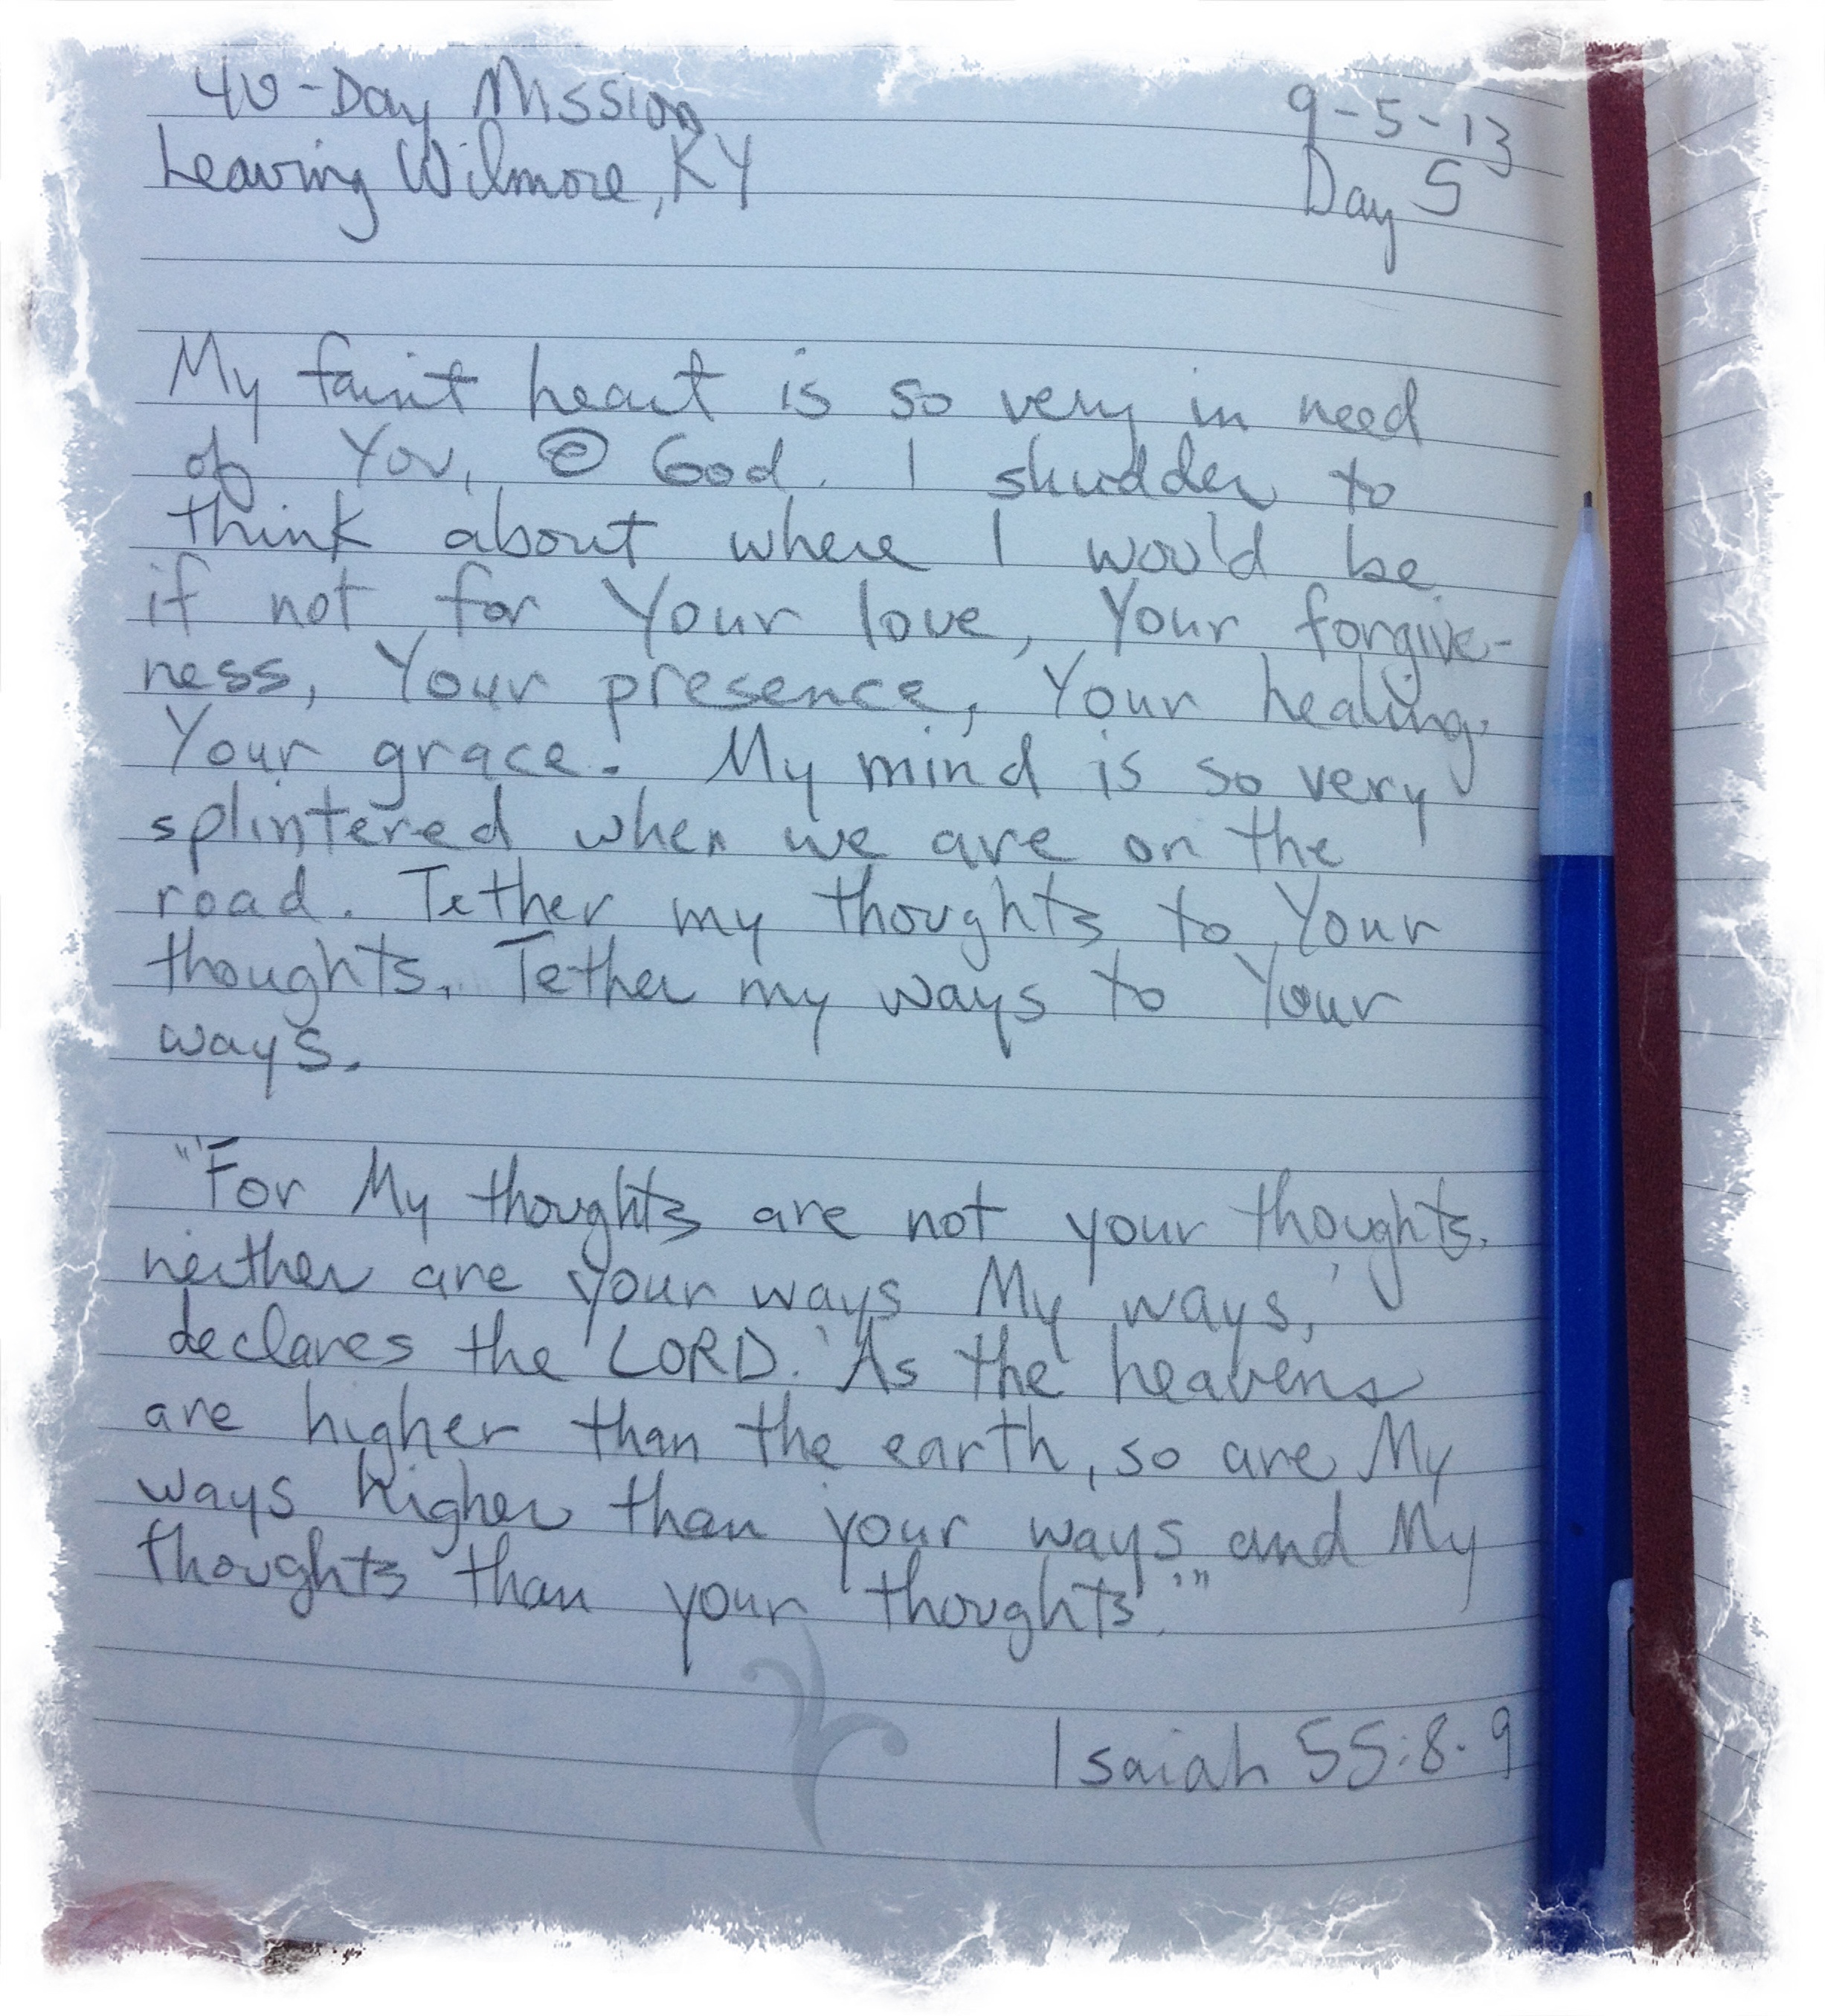 40-Day Mission
9-5-13
Leaving Wilmore, KY
Day 5
My faint heart is so very in need
of You, O God. I shudder to
think about where I would be
if not for Your love, Your forgive-
ness, Your presence, Your healing,
Your grace. My mind is so very
splintered when we are on the
road. Tether my thoughts to Your
thoughts. Tether my ways to Your
ways.
"'For My thoughts are not your thoughts,
neither are your ways My ways,'
declares the LORD. 'As the heavens
are higher than the earth, so are My
ways higher than your ways and My
thoughts than your thoughts.'"
Isaiah 55:8-9